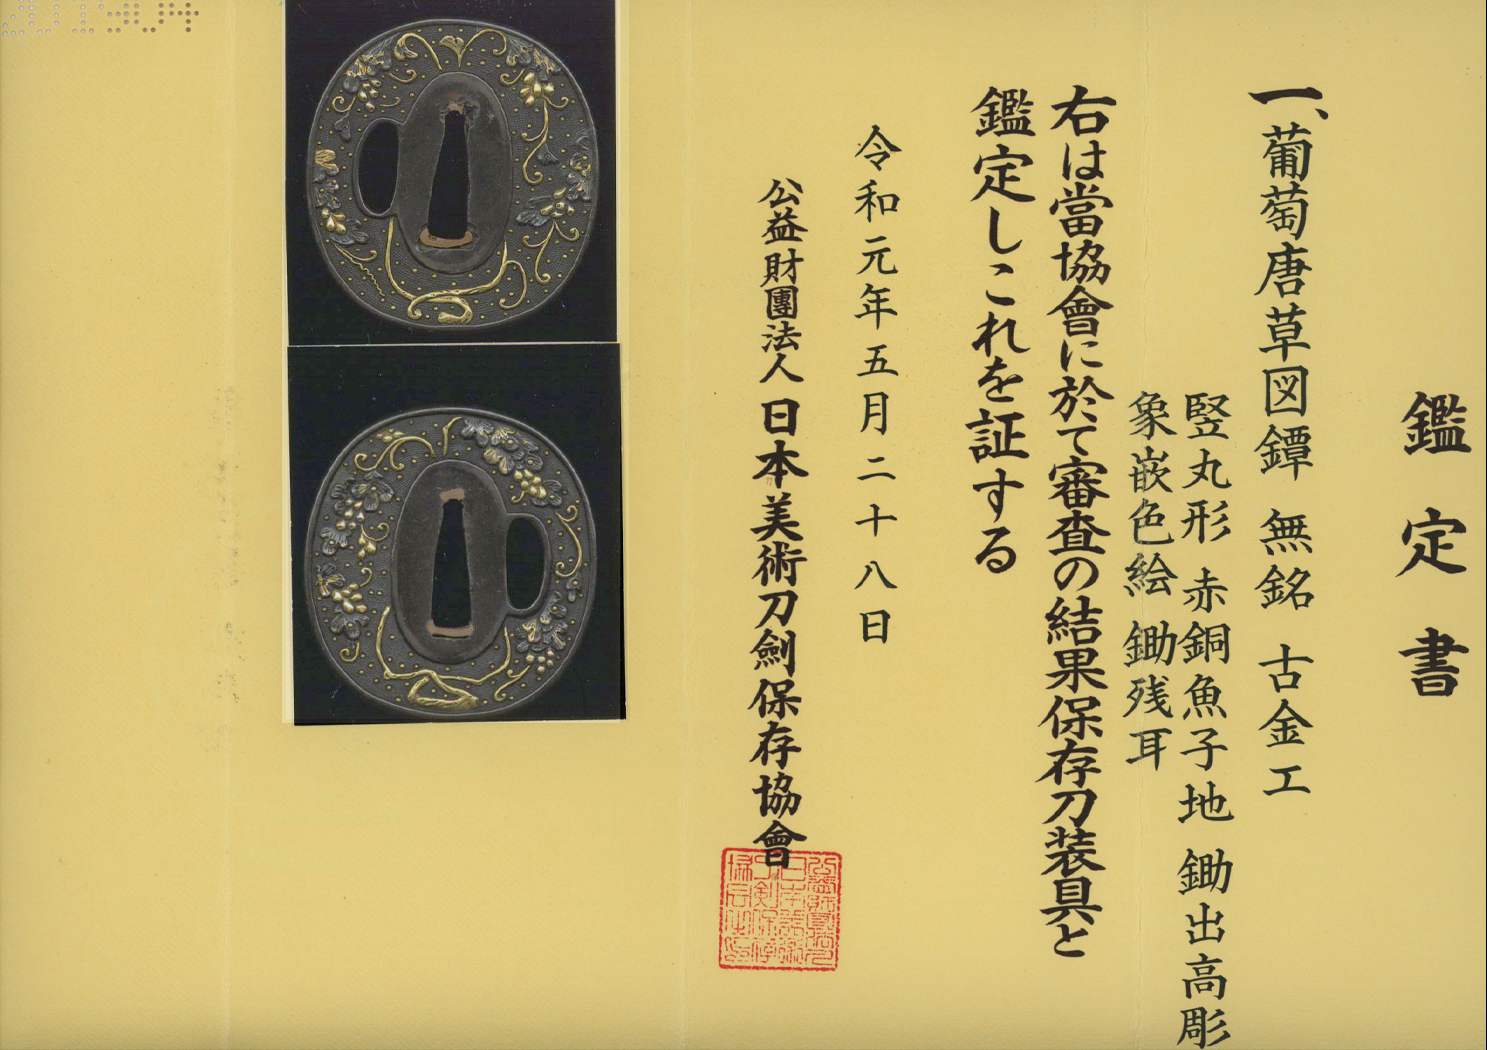 鑑定書
一、葡萄唐草図鐔 無銘 古金工
竪丸形 赤銅魚子地 鋤出高彫
象嵌色絵 鋤残耳
右は當協會に於て審査の結果保存刀装具と
鑑定しこれを証する
令和元年五月二十八日
公益財團法人 日本美術刀劍保存協會